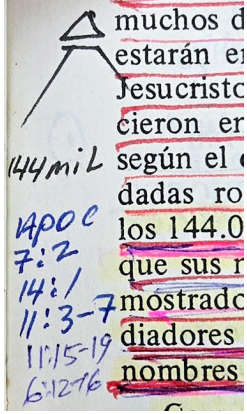 muchos d
estarán e
Jesucristo
cieron en
144MIL
según el
dadas ro
los 144.0
que sus
mostrado
diadores
nombres
APOC
7:2
14:1
11:3-7
11:15-19